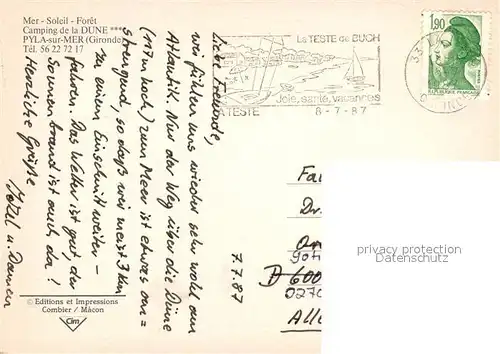 Mer - Soleil - Forêt
Camping de la DUNE ****
PYLA-sur-MER (Gironde)
Tél. 56 22 72 17
La TESTE de BUCH
Joie, santé, vacances
LA TESTE
8-7-87
33
1,90
REPUBLIQUE FRANÇAISE
Liebe Freunde,
wir fühlen uns wieder sehr wohl am
Atlantik. Nur der Weg über die Düne
(117 m hoch) zum Meer ist etwas an=
strengend, so daß wir meist 3 km
zu einem Einschnitt weiter-
fahren. Das Wetter ist gut, der
Sonnenbrand ist auch da!
Herzliche Grüße
u. Damen
7.7.87
Fa
Dr.
D 600
Alle
privacy protection
© Editions et Impressions
Combier / Mâcon
Cim